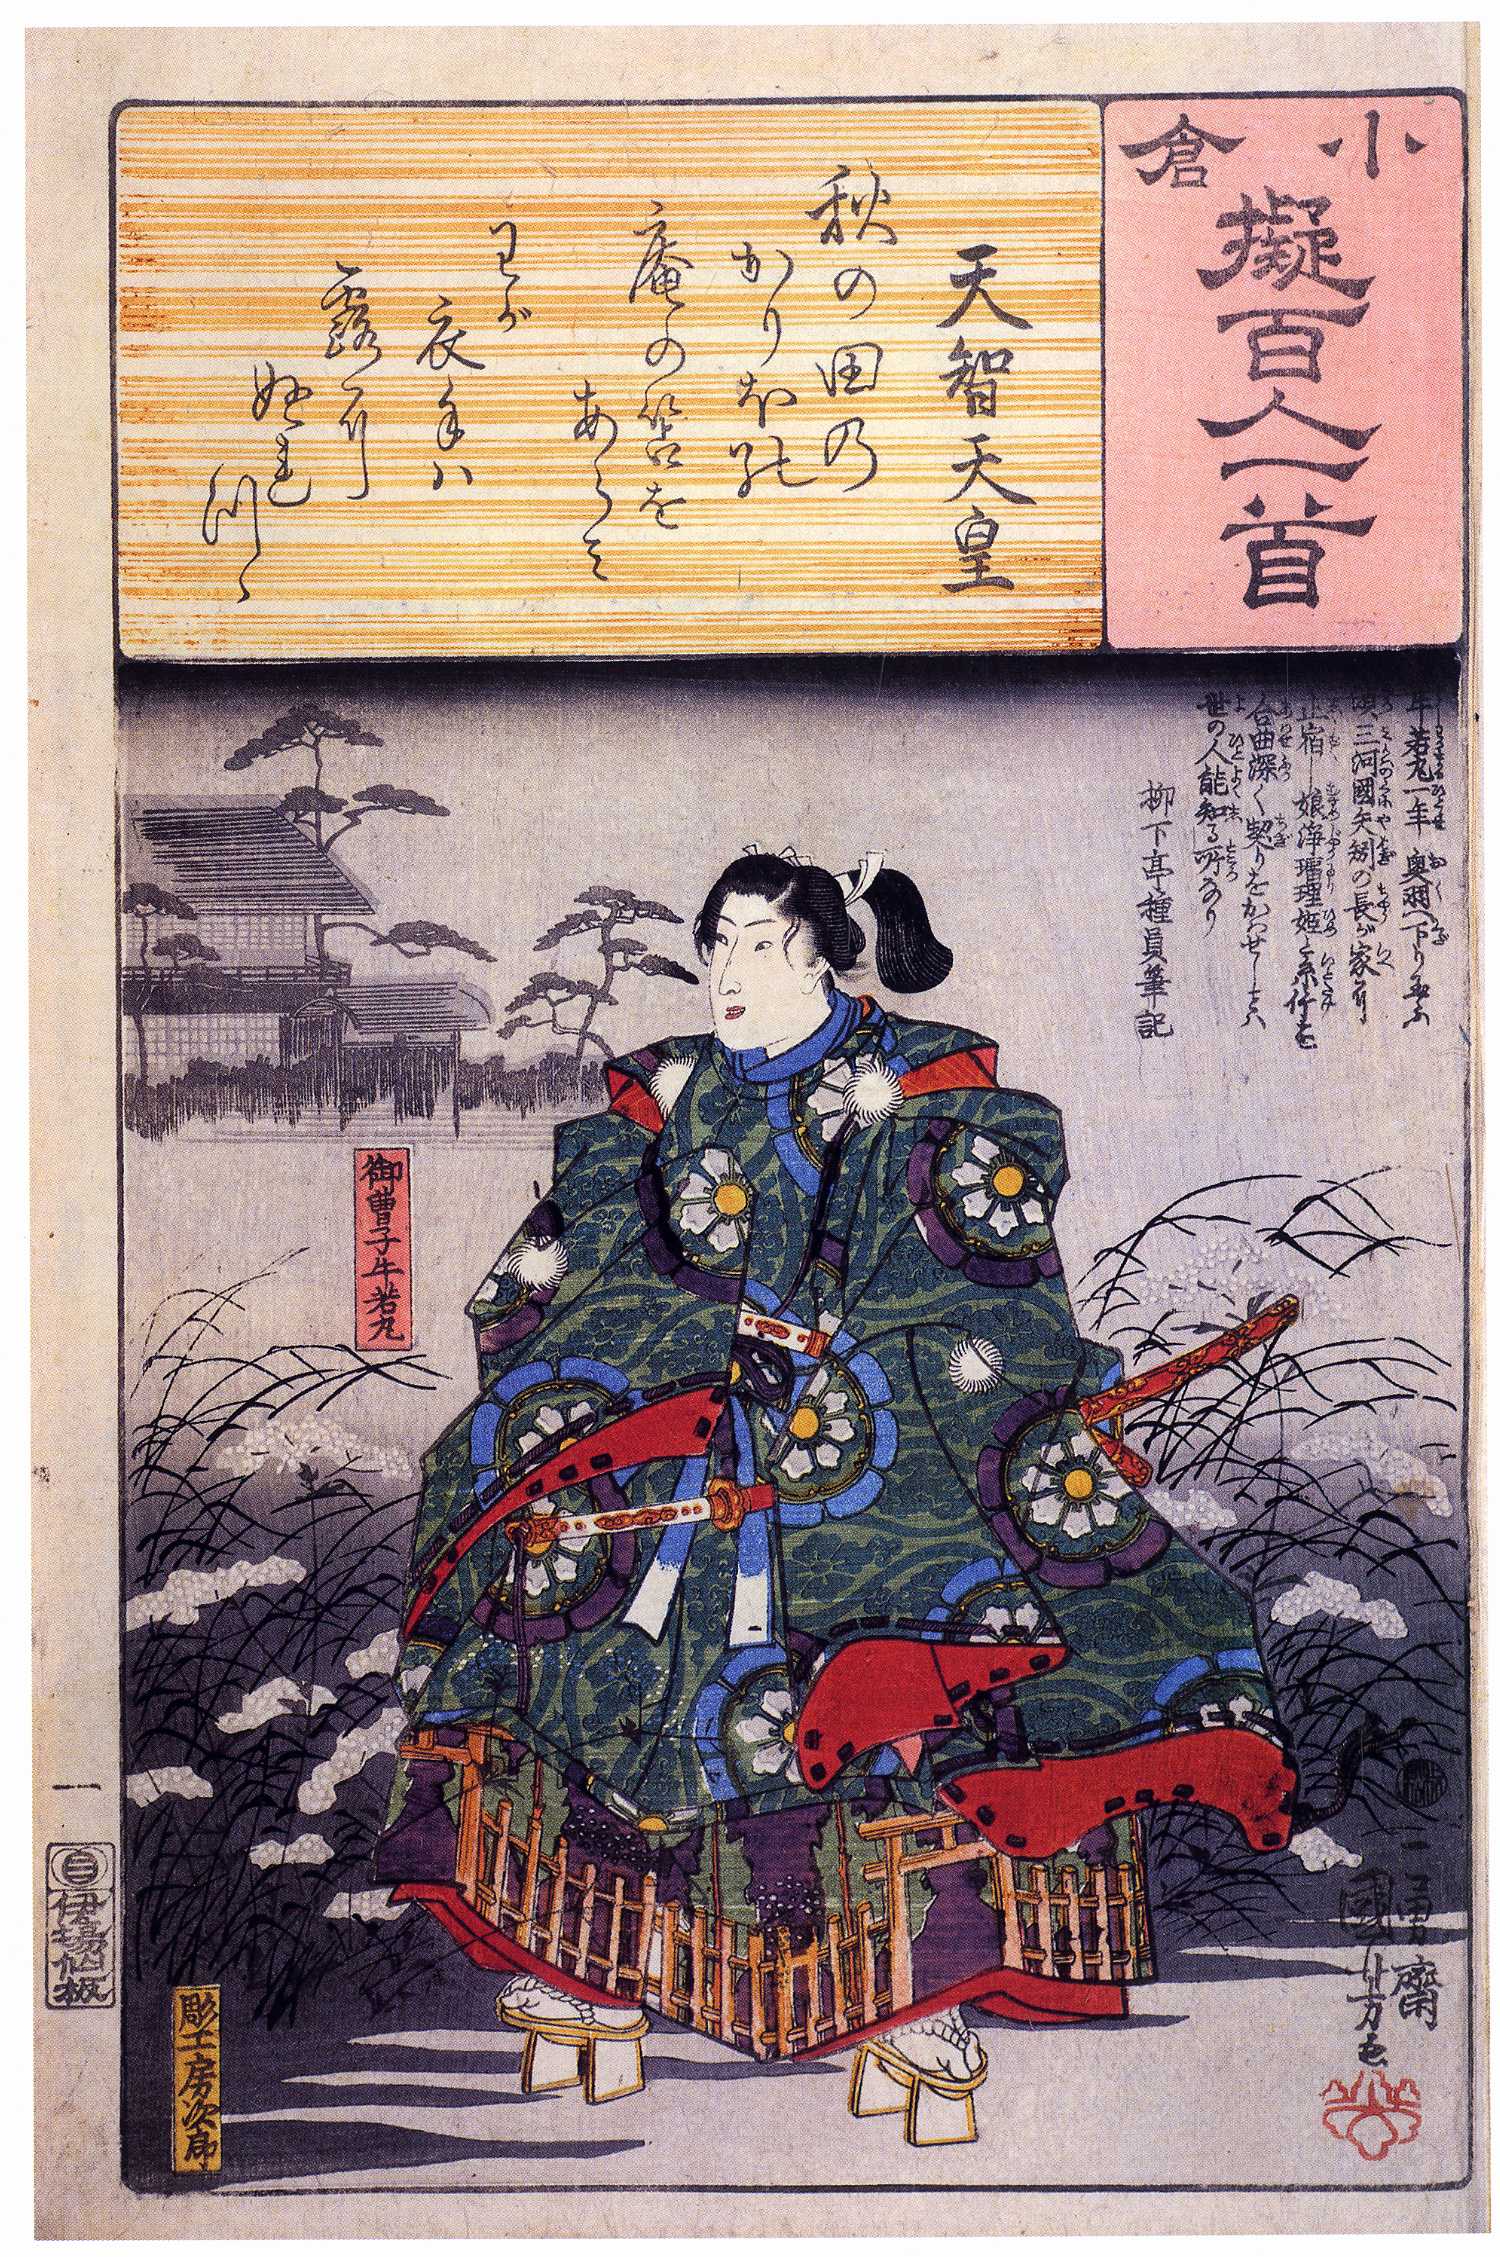 小倉
擬百人一首
天智天皇
秋の田乃
かりほの
庵の笘を
あらみ
わが
衣手ハ
露に
ぬれ
つゝ
牛若丸一年奥羽へ下り玉ふ
頃三河國矢矧の長が家に
止宿し娘浄瑠理姫と糸竹を
合曲深く契りをかわせしとハ
世の人能知る所なり
柳下亭種員筆記
御曹子牛若丸
一勇齋
國芳画
一
伊場仙板
彫工房次郎